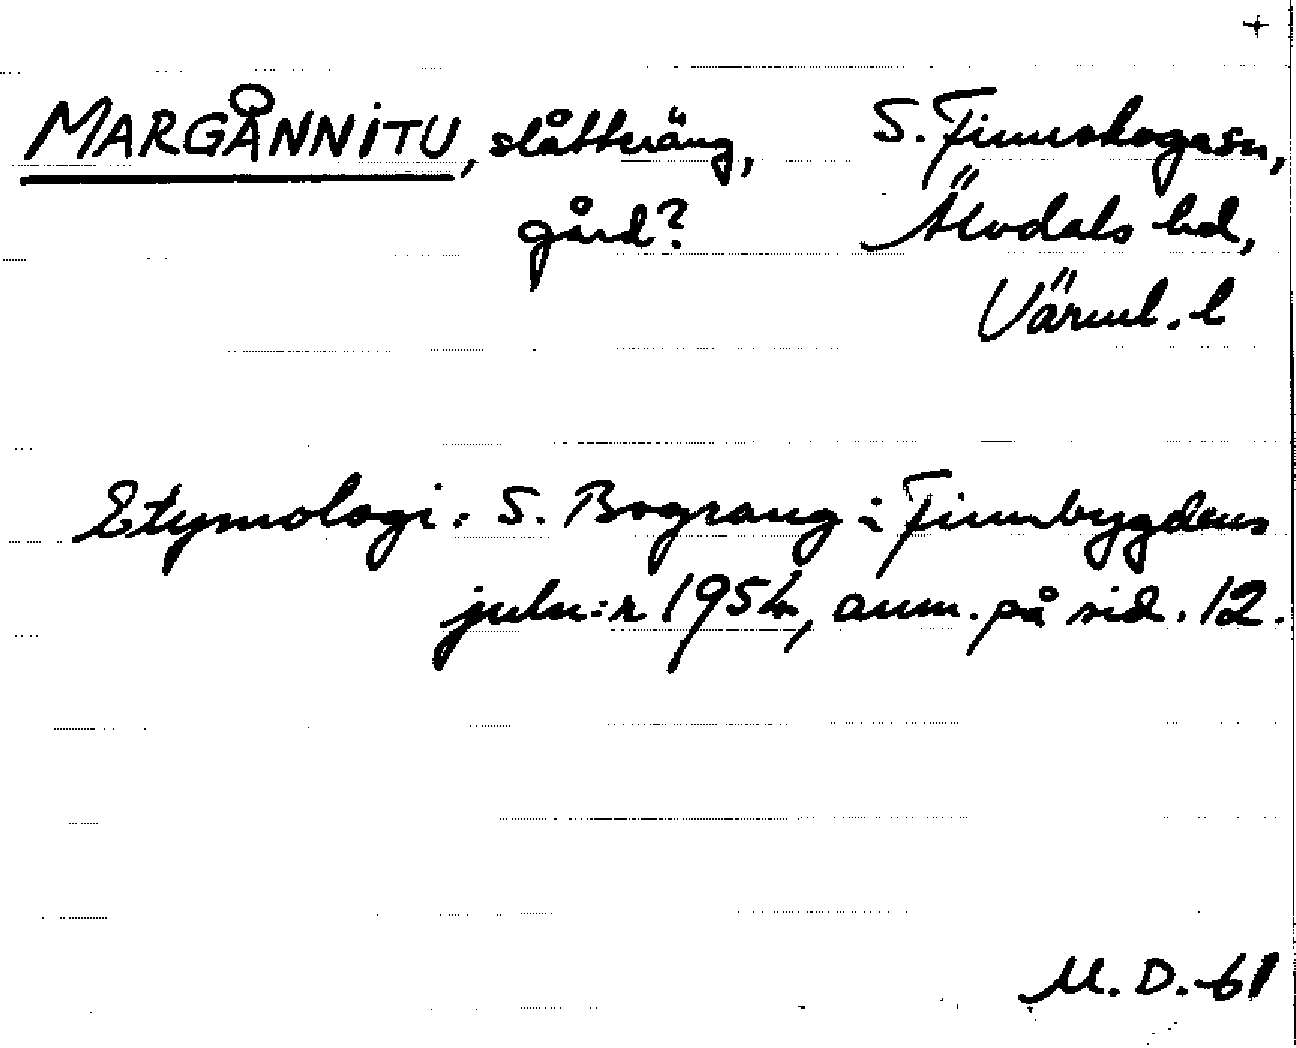 +
MARGÅNNITU, slåtteräng, S. Finnskogasn,
gård? Älvdals hd,
Värml. l
Etymologi: S. Bograng i Finnbygdens
julnr 1954, anm. på sid. 12.
M. D. -61